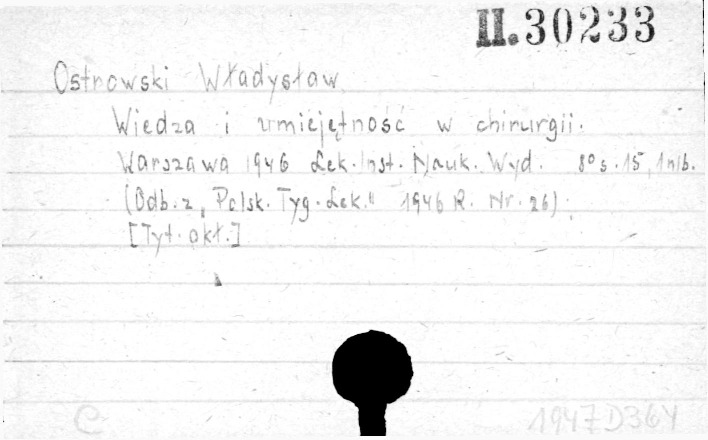 II. 30233
Ostrowski Władysław
Wiedza i umiejętność w chirurgii.
Warszawa 1946 Lek. Inst. Nauk. Wyd. 8° s. 15, 1 nlb.
(Odb. z „Polsk. Tyg. Lek." 1946 R. Nr. 26).
[Tyt. okł.]
C
1947 D 364